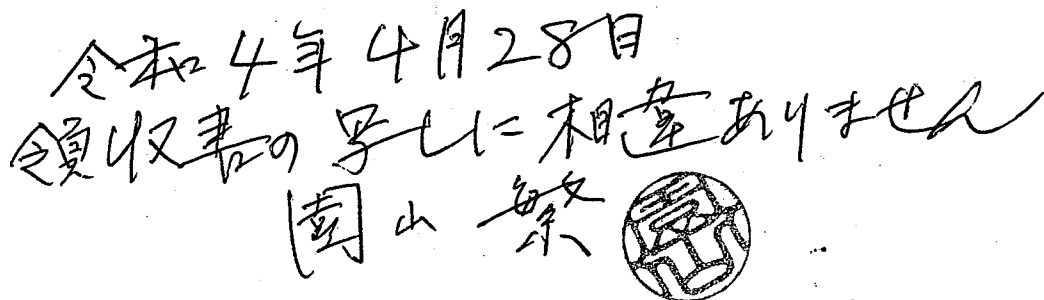 令和4年4月28日
領収書の写しに相違ありません
園山 繁
園山